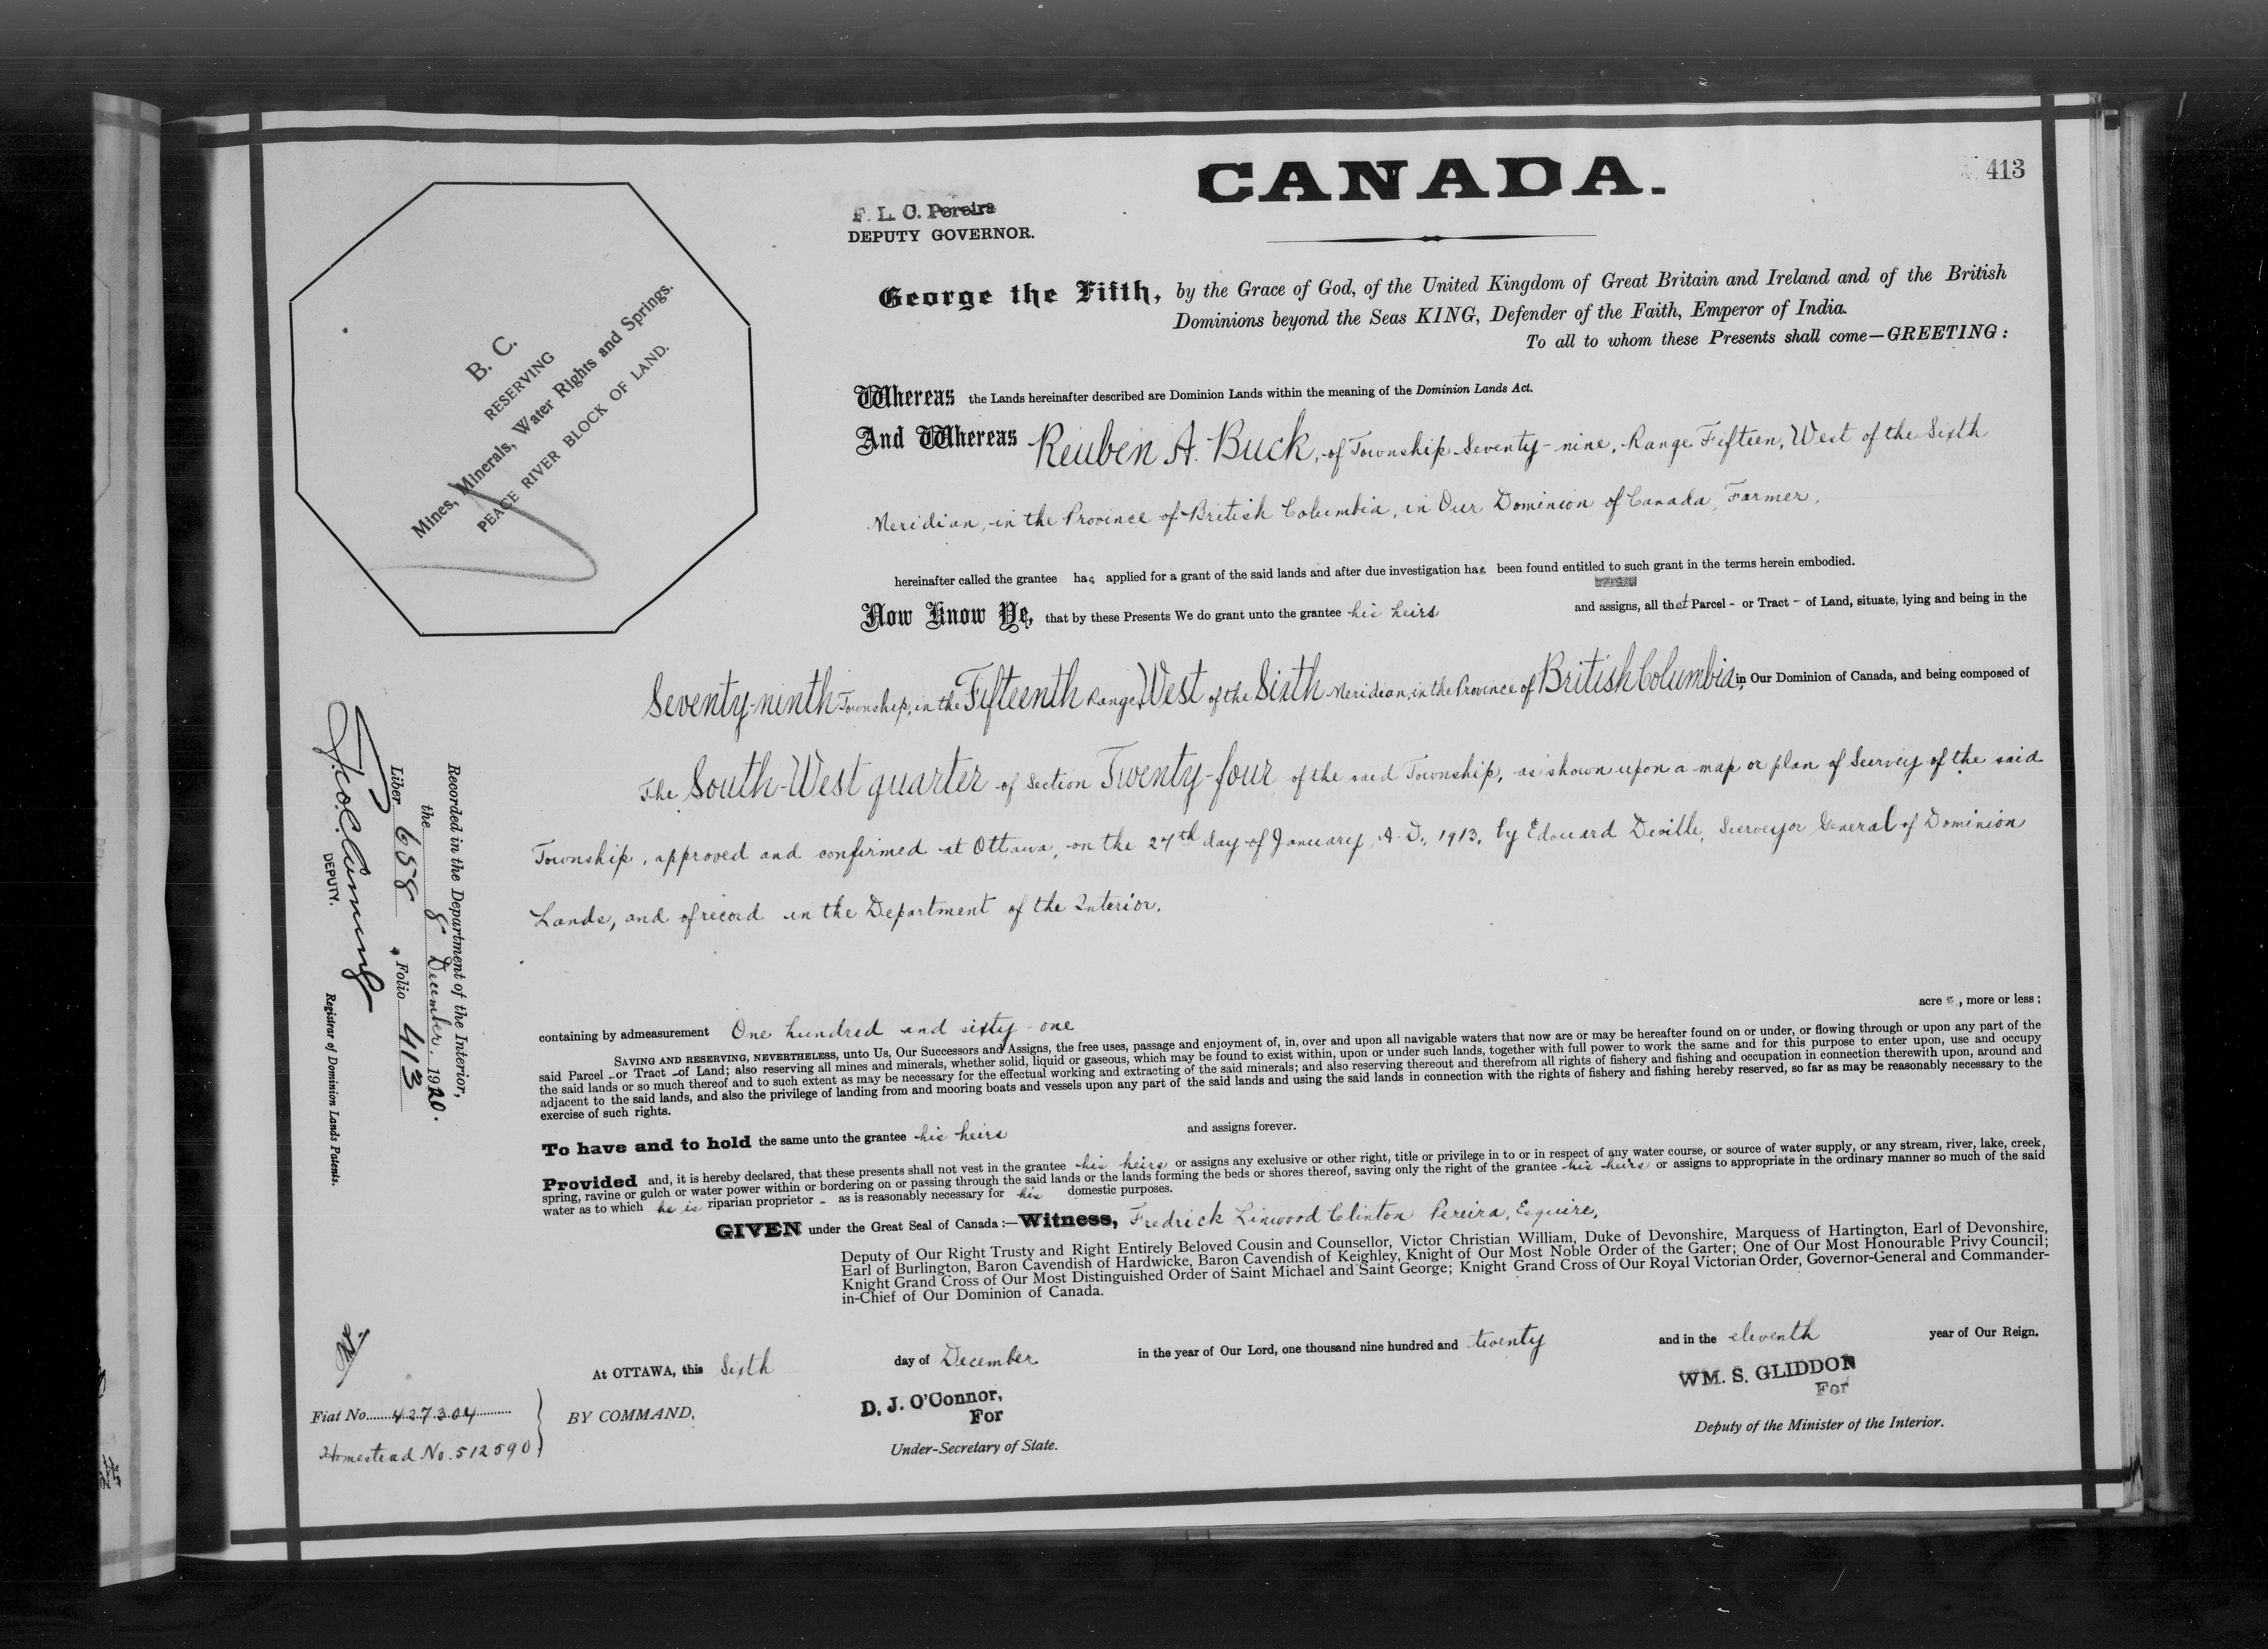 CANADA.
413
F. L. C. Pereira
DEPUTY GOVERNOR.
George the Fifth, by the Grace of God, of the United Kingdom of Great Britain and Ireland and of the British
Dominions beyond the Seas KING, Defender of the Faith, Emperor of India.
To all to whom these Presents shall come—GREETING:
B. C.
RESERVING
Mines, Minerals, Water Rights and Springs.
PEACE RIVER BLOCK OF LAND.
Whereas the Lands hereinafter described are Dominion Lands within the meaning of the Dominion Lands Act.
And Whereas Reuben A. Buck, of Township Seventy-nine, Range Fifteen, West of the Sixth
Meridian, in the Province of British Columbia, in Our Dominion of Canada, Farmer.
hereinafter called the grantee has applied for a grant of the said lands and after due investigation has been found entitled to such grant in the terms herein embodied.
Now Know Ye, that by these Presents We do grant unto the grantee his heirs and assigns, all that Parcel - or Tract - of Land, situate, lying and being in the
Seventy-ninth Township, in the Fifteenth Range, West of the Sixth Meridian, in the Province of British Columbia, in Our Dominion of Canada, and being composed of
The South-West quarter of Section Twenty-four of the said Township, as shown upon a map or plan of Survey of the said
Township, approved and confirmed at Ottawa, on the 27th day of January, A. D., 1913, by Edouard Deville, Surveyor General of Dominion
Lands, and of record in the Department of the Interior.
containing by admeasurement One hundred and sixty-one acres, more or less;
SAVING AND RESERVING, NEVERTHELESS, unto Us, Our Successors and Assigns, the free uses, passage and enjoyment of, in, over and upon all navigable waters that now are or may be hereafter found on or under, or flowing through or upon any part of the
said Parcel - or Tract - of Land; also reserving all mines and minerals, whether solid, liquid or gaseous, which may be found to exist within, upon or under such lands, together with full power to work the same and for this purpose to enter upon, use and occupy
the said lands or so much thereof and to such extent as may be necessary for the effectual working and extracting of the said minerals; and also reserving thereout and therefrom all rights of fishery and fishing and occupation in connection therewith upon, around and
adjacent to the said lands, and also the privilege of landing from and mooring boats and vessels upon any part of the said lands and using the said lands in connection with the rights of fishery and fishing hereby reserved, so far as may be reasonably necessary to the
exercise of such rights.
To have and to hold the same unto the grantee his heirs and assigns forever.
Provided and, it is hereby declared, that these presents shall not vest in the grantee his heirs or assigns any exclusive or other right, title or privilege in to or in respect of any water course, or source of water supply, or any stream, river, lake, creek,
spring, ravine or gulch or water power within or bordering on or passing through the said lands or the lands forming the beds or shores thereof, saving only the right of the grantee his heirs or assigns to appropriate in the ordinary manner so much of the said
water as to which he is riparian proprietor - as is reasonably necessary for his domestic purposes.
GIVEN under the Great Seal of Canada:—Witness, Fredrick Linwood Clinton Pereira, Esquire,
Deputy of Our Right Trusty and Right Entirely Beloved Cousin and Counsellor, Victor Christian William, Duke of Devonshire, Marquess of Hartington, Earl of Devonshire,
Earl of Burlington, Baron Cavendish of Hardwicke, Baron Cavendish of Keighley, Knight of Our Most Noble Order of the Garter; One of Our Most Honourable Privy Council;
Knight Grand Cross of Our Most Distinguished Order of Saint Michael and Saint George; Knight Grand Cross of Our Royal Victorian Order, Governor-General and Commander-
in-Chief of Our Dominion of Canada.
At OTTAWA, this Sixth day of December in the year of Our Lord, one thousand nine hundred and twenty and in the eleventh year of Our Reign.
BY COMMAND,
D. J. O'Connor,
For
Under-Secretary of State.
WM. S. GLIDDON
For
Deputy of the Minister of the Interior.
Recorded in the Department of the Interior,
the 8 December. 1920.
Liber 658 Folio 413
DEPUTY. Registrar of Dominion Lands Patents.
Fiat No. 427304
Homestead No. 512590